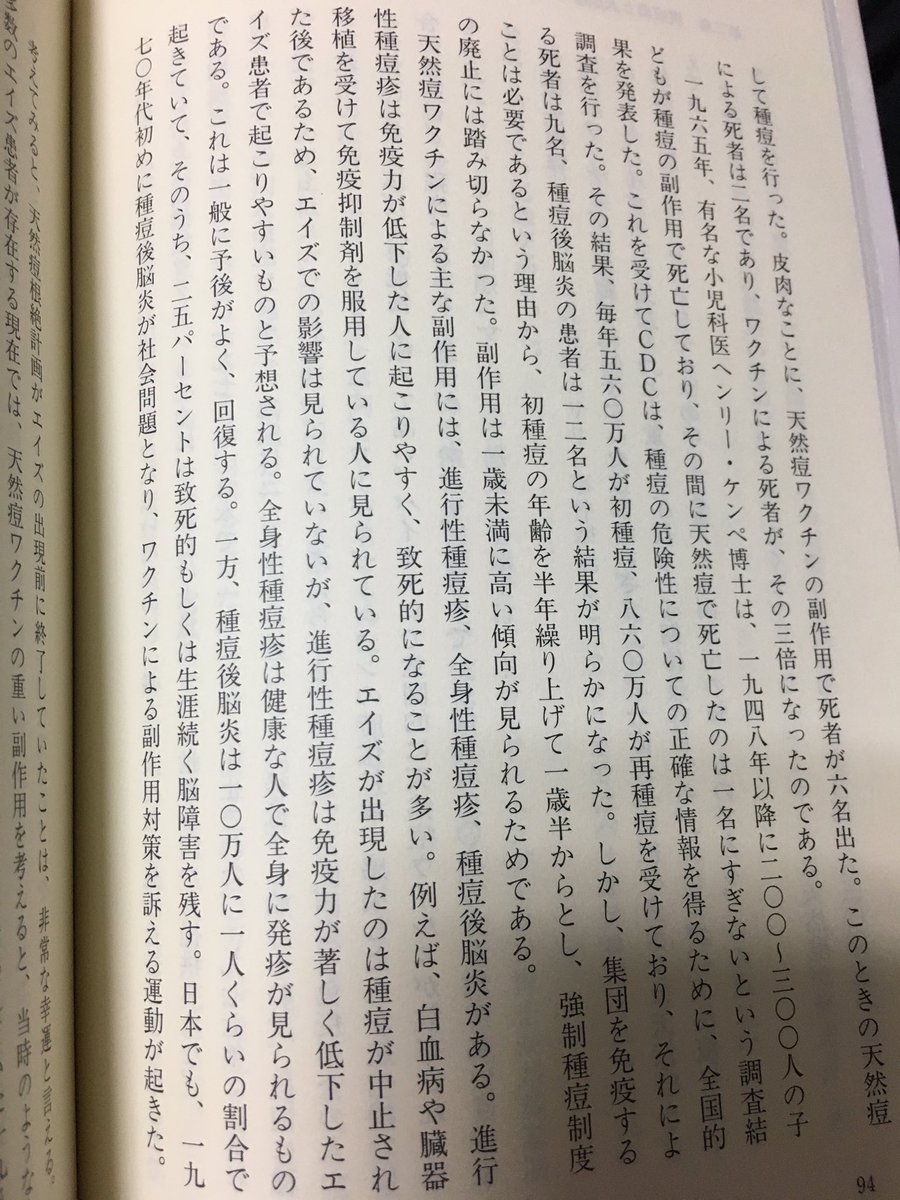 して種痘を行った。皮肉なことに、天然痘ワクチンの副作用で死者が六名出た。このときの天然痘
による死者は二名であり、ワクチンによる死者が、その三倍になったのである。
一九六五年、有名な小児科医ヘンリー・ケンペ博士は、一九四八年以降に二〇〇〜三〇〇人の子
どもが種痘の副作用で死亡しており、その間に天然痘で死亡したのは一名にすぎないという調査結
果を発表した。これを受けてCDCは、種痘の危険性についての正確な情報を得るために、全国的
調査を行った。その結果、毎年五六〇万人が初種痘、八六〇万人が再種痘を受けており、それによ
る死者は九名、種痘後脳炎の患者は一二名という結果が明らかになった。しかし、集団を免疫する
ことは必要であるという理由から、初種痘の年齢を半年繰り上げて一歳半からとし、強制種痘制度
の廃止には踏み切らなかった。副作用は一歳未満に高い傾向が見られるためである。
天然痘ワクチンによる主な副作用には、進行性種痘疹、全身性種痘疹、種痘後脳炎がある。進行
性種痘疹は免疫力が低下した人に起こりやすく、致死的になることが多い。例えば、白血病や臓器
移植を受けて免疫抑制剤を服用している人に見られている。エイズが出現したのは種痘が中止され
た後であるため、エイズでの影響は見られていないが、進行性種痘疹は免疫力が著しく低下したエ
イズ患者で起こりやすいものと予想される。全身性種痘疹は健康な人で全身に発疹が見られるもの
である。これは一般に予後がよく、回復する。一方、種痘後脳炎は一〇万人に一人くらいの割合で
起きていて、そのうち、二五パーセントは致死的もしくは生涯続く脳障害を残す。日本でも、一九
七〇年代初めに種痘後脳炎が社会問題となり、ワクチンによる副作用対策を訴える運動が起きた。
考えてみると、天然痘根絶計画がエイズの出現前に終了していたことは、非常な幸運と言える。
数のエイズ患者が存在する現在では、天然痘ワクチンの重い副作用を考えると、当時のような
94